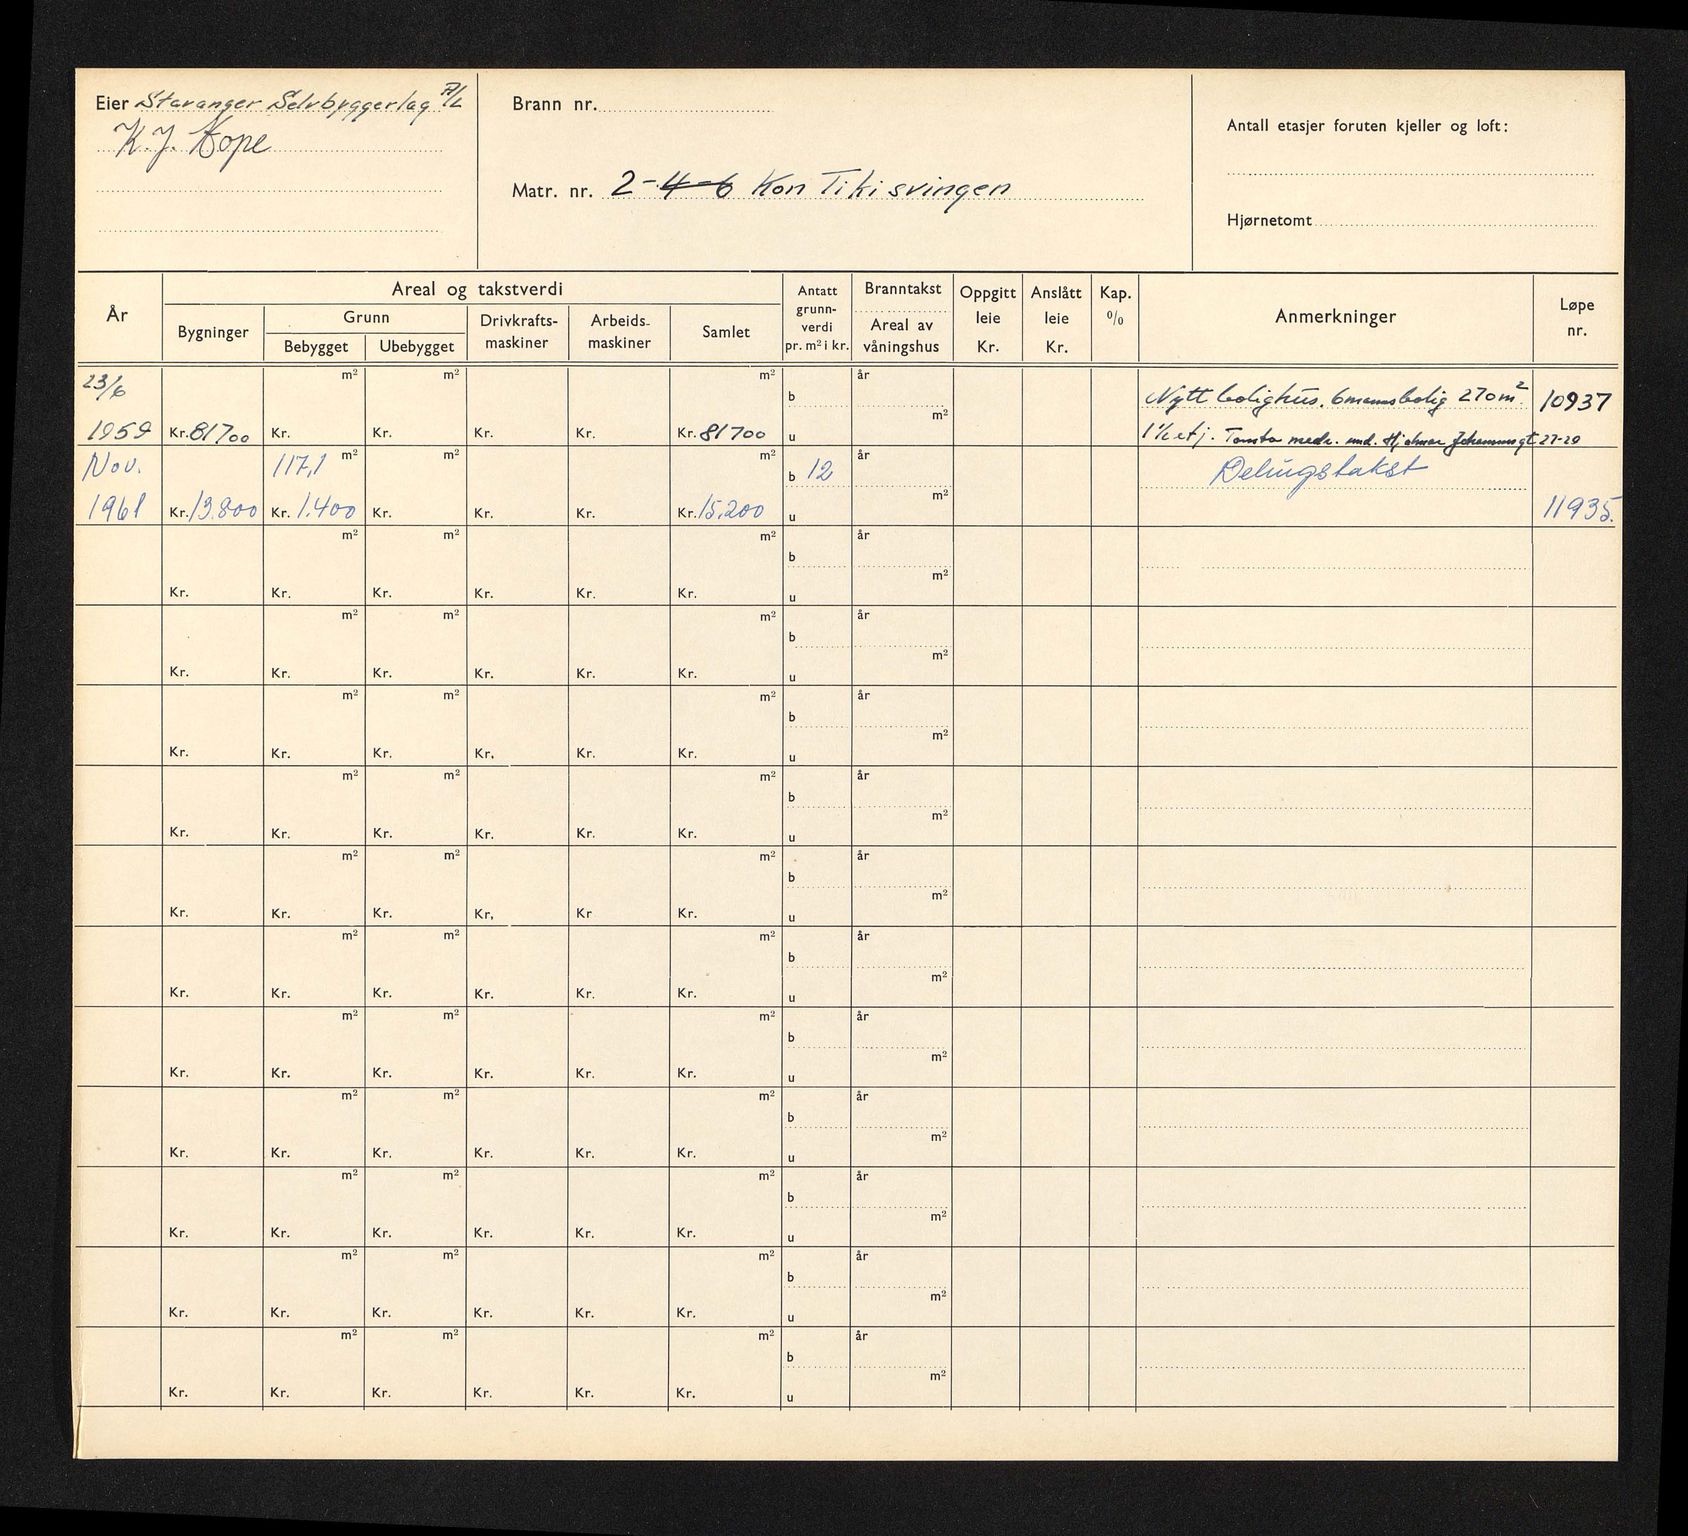 Eier Stavanger Selvbyggerlag A/L
K. J. Hope
Brann nr.
Matr. nr. 2-4-6 Kon Tiki svingen
Antall etasjer foruten kjeller og loft:
Hjørnetomt
År
Areal og takstverdi
Bygninger
Grunn
Bebygget Ubebygget
Drivkrafts-
maskiner
Arbeids-
maskiner
Samlet
Antatt
grunn-
verdi
pr. m² i kr.
Branntakst
Areal av
våningshus
Oppgitt
leie
Kr.
Anslått
leie
Kr.
Kap.
%
Anmerkninger
Løpe
nr.
23/6 m² m² m² b år Nytt bolighus. 6mannsbolig 270 m². 10937
m²
1959 Kr. 81700 Kr. Kr. Kr. Kr. Kr. 81700 u 1½ etj. Tomta medr. und. Hjalmar Johansensgt 27-29
Nov. 117,1 m² m² m² b 12 år Delingstakst
m²
1961 Kr. 13.800 Kr. 1.400 Kr. Kr. Kr. Kr. 15.200 u 11935.
m² m² m² b år
m²
Kr. Kr. Kr. Kr. Kr. Kr. u
m² m² m² b år
m²
Kr. Kr. Kr. Kr. Kr. Kr. u
m² m² m² b år
m²
Kr. Kr. Kr. Kr. Kr. Kr. u
m² m² m² b år
m²
Kr. Kr. Kr. Kr. Kr. Kr. u
m² m² m² b år
m²
Kr. Kr. Kr. Kr. Kr Kr. u
m² m² m² b år
m²
Kr. Kr. Kr. Kr. Kr. Kr. u
m² m² m² b år
m²
Kr. Kr. Kr. Kr. Kr. Kr. u
m² m² m² b år
m²
Kr. Kr. Kr. Kr. Kr. Kr. u
m² m² m² b år
m²
Kr. Kr. Kr. Kr. Kr. Kr. u
m² m² m² b år
m²
Kr. Kr. Kr. Kr. Kr. Kr. u
m² m² m² b år
m²
Kr. Kr. Kr. Kr. Kr. Kr. u